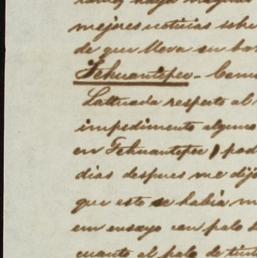 mejores noticias sobre
de que lleva su bo
Tehuantepec - Como
Lattuada respecto al
impedimento alguno
en Tehuantepec) pod
dias despues me dijo
que este se habia m
em ensayo con palo d
cuanto al palo de tint